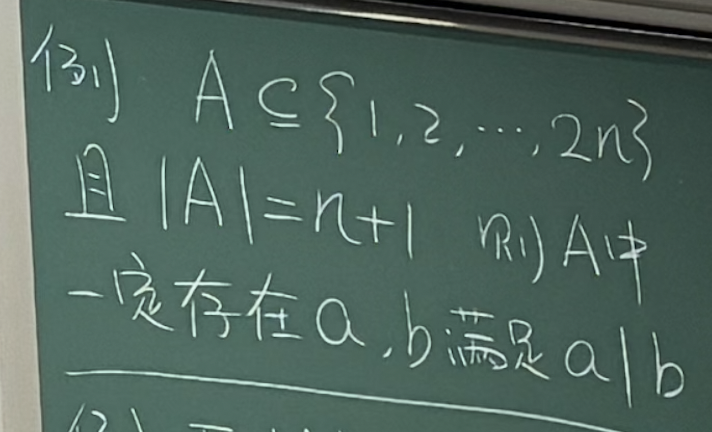 例 A⊆{1,2,…,2n}
且 |A|=n+1 则A中
一定存在a,b满足a|b